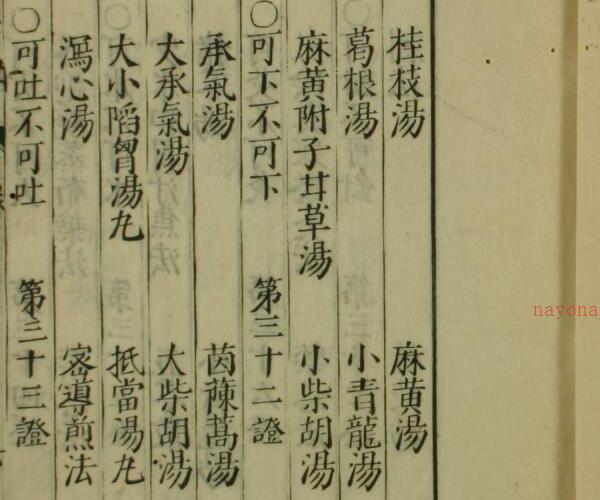 桂枝湯 麻黄湯
葛根湯 小青龍湯
麻黄附子甘草湯 小柴胡湯
○可下不可下 第三十二證
承氣湯 茵蔯蒿湯
大承氣湯 大柴胡湯
大小䧟胷湯丸 抵當湯丸
瀉心湯 宻導煎法
○可吐不可吐 第三十三證
nayona